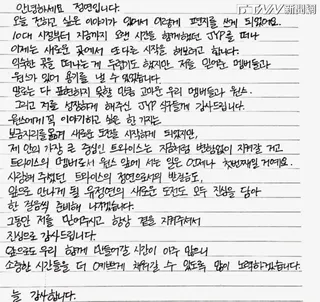 TVBS NEWS
안녕하세요 정연입니다.
오늘 전하고 싶은 이야기가 있어서 이렇게 편지를 쓰게 되었어요.
10대 시절부터 지금까지 오랜 시간을 함께했던 JYP를 떠나
이제는 새로운 곳에서 또다른 시작을 해보려고 합니다.
익숙한 곳을 떠나는 게 두렵기도 했지만, 저를 믿어준 멤버들과
원스가 있어 용기를 낼 수 있었습니다.
말로는 다 표현하지 못할 만큼 고마운 우리 멤버들과 원스.
그리고 저를 성장하게 해주신 JYP 식구들께 감사드립니다.
원스에게 꼭 이야기하고 싶은 한 가지는,
보금자리를 옮겨 새로운 도전을 시작하게 되었지만,
제 안의 가장 큰 중심인 트와이스는 지금처럼 변함없이 지켜갈 거고
트와이스의 멤버로서 원스 앞에 서는 일은 언제나 첫번째일 거예요.
사랑해 주셨던 트와이스의 정연으로서의 반짝임도,
앞으로 만나게 될 유정연의 새로운 도전도 모두 진심을 담아
한 걸음씩 준비해 나가겠습니다.
그동안 저를 믿어주시고 항상 곁을 지켜주셔서
진심으로 감사드립니다.
앞으로도 우리 함께 만들어갈 시간이 아주 많으니
소중한 시간들을 더 예쁘게 채워갈 수 있도록 많이 노력하겠습니다.
늘 감사합니다.